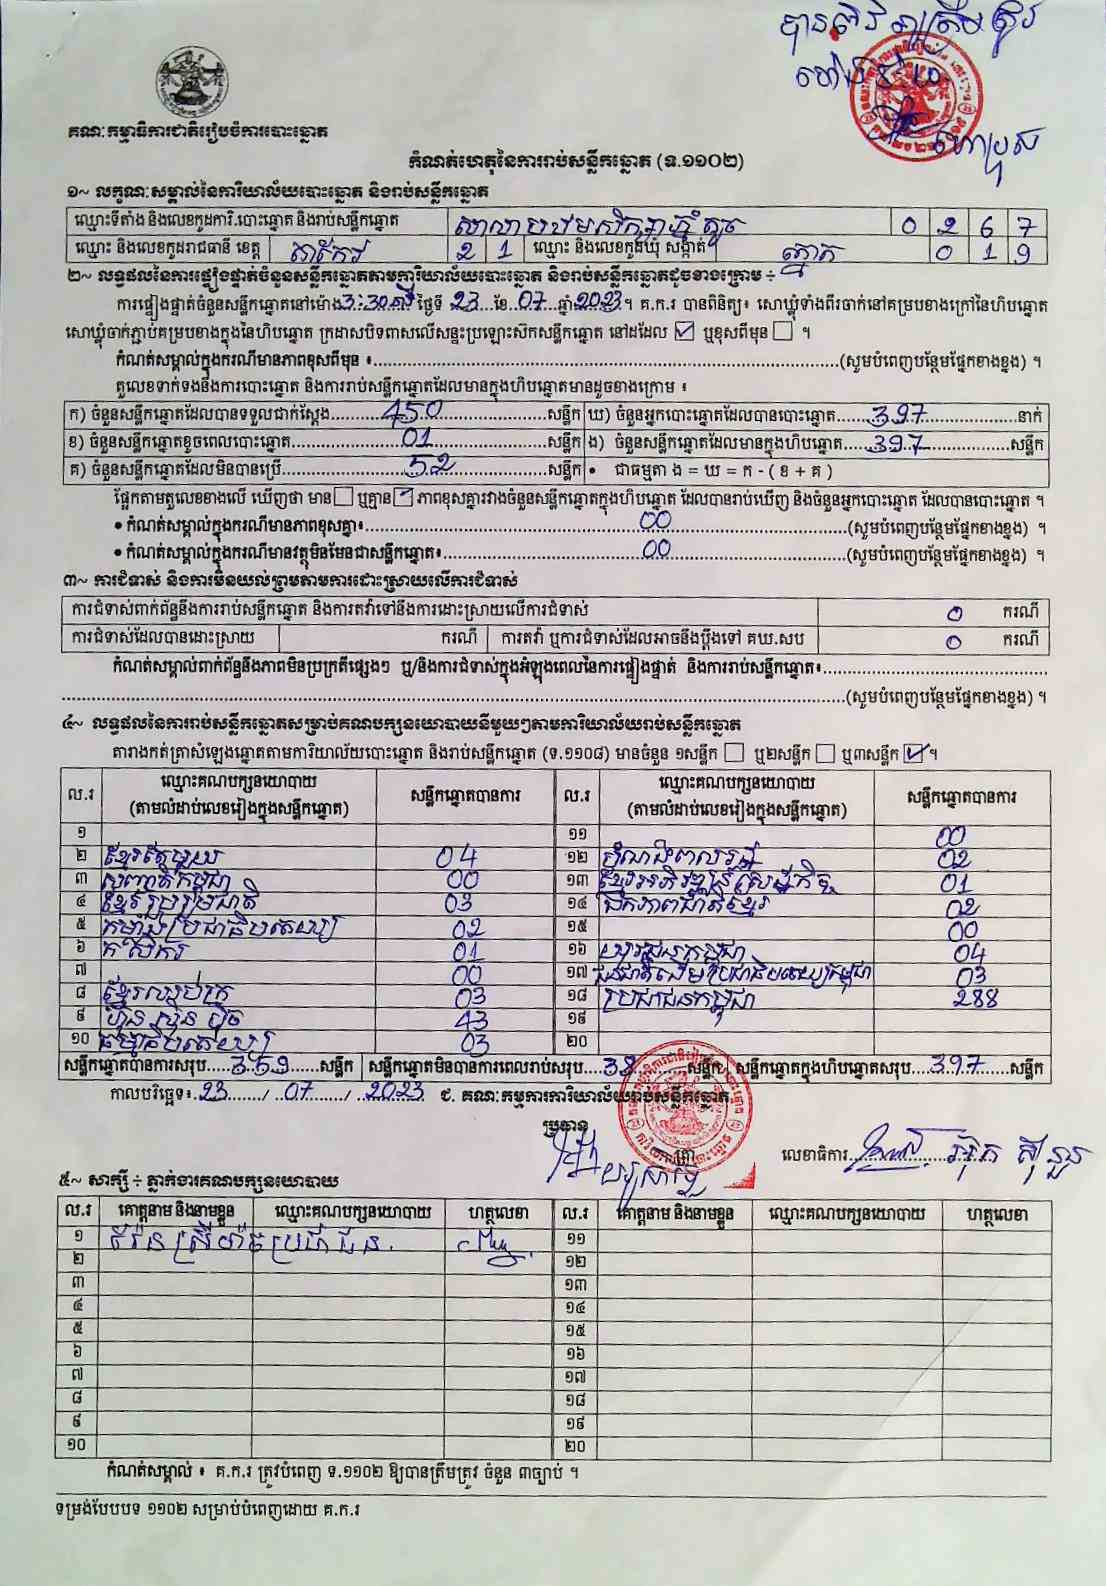 បានពិនិត្យត្រឹមត្រូវ
គណៈកម្មាធិការជាតិរៀបចំការបោះឆ្នោត
កំណត់ហេតុនៃការរាប់សន្លឹកឆ្នោត (ទ.១១០២)
១~ លក្ខណៈសម្គាល់នៃការិយាល័យបោះឆ្នោត និងរាប់សន្លឹកឆ្នោត
ឈ្មោះទីតាំង និងលេខកូដការិ.បោះឆ្នោត និងរាប់សន្លឹកឆ្នោត សាលាបឋមសិក្សា តូច 0 2 6 7
ឈ្មោះ និងលេខកូដរាជធានី ខេត្ត តាកែវ 2 1 ឈ្មោះ និងលេខកូដឃុំ សង្កាត់ 0 1 9
២~ លទ្ធផលនៃការផ្ទៀងផ្ទាត់ចំនួនសន្លឹកឆ្នោតតាមការិយាល័យបោះឆ្នោត និងរាប់សន្លឹកឆ្នោតដូចខាងក្រោម ÷
ការផ្ទៀងផ្ទាត់ចំនួនសន្លឹកឆ្នោតនៅម៉ោង 3:30 ថ្ងៃទី 23 ខែ 07 ឆ្នាំ 2023 ។ គ.ក.រ បានពិនិត្យ៖ សោឃ្លុំទាំងពីរចាក់នៅគម្របខាងក្រៅនៃហិបឆ្នោត
សោឃ្លុំចាក់ភ្ជាប់គម្របខាងក្នុងនៃហិបឆ្នោត ក្រដាសបិទពាសលើសន្ទះប្រឡោះស៊កសន្លឹកឆ្នោត នៅដដែល ☑ ឬខុសពីមុន ☐ ។
កំណត់សម្គាល់ក្នុងករណីមានភាពខុសពីមុន ៖ (សូមបំពេញបន្ថែមផ្នែកខាងខ្នង) ។
តួលេខទាក់ទងនឹងការបោះឆ្នោត និងការរាប់សន្លឹកឆ្នោតដែលមានក្នុងហិបឆ្នោតមានដូចខាងក្រោម ៖
ក) ចំនួនសន្លឹកឆ្នោតដែលបានទទួលជាក់ស្តែង 450 សន្លឹក ឃ) ចំនួនអ្នកបោះឆ្នោតដែលបានបោះឆ្នោត 397 នាក់
ខ) ចំនួនសន្លឹកឆ្នោតខូចពេលបោះឆ្នោត 01 សន្លឹក ង) ចំនួនសន្លឹកឆ្នោតដែលមានក្នុងហិបឆ្នោត 397 សន្លឹក
គ) ចំនួនសន្លឹកឆ្នោតដែលមិនបានប្រើ 52 សន្លឹក • ជាធម្មតា ង = ឃ = ក - ( ខ + គ )
ផ្អែកតាមតួលេខខាងលើ ឃើញថា មាន ☐ ឬគ្មាន ☑ ភាពខុសគ្នារវាងចំនួនសន្លឹកឆ្នោតក្នុងហិបឆ្នោត ដែលបានរាប់ឃើញ និងចំនួនអ្នកបោះឆ្នោត ដែលបានបោះឆ្នោត ។
• កំណត់សម្គាល់ក្នុងករណីមានភាពខុសគ្នា៖ 00 (សូមបំពេញបន្ថែមផ្នែកខាងខ្នង) ។
• កំណត់សម្គាល់ក្នុងករណីមានវត្ថុមិនមែនជាសន្លឹកឆ្នោត៖ 00 (សូមបំពេញបន្ថែមផ្នែកខាងខ្នង) ។
៣~ ការជំទាស់ និងការមិនយល់ព្រមតាមការដោះស្រាយលើការជំទាស់
ការជំទាស់ពាក់ព័ន្ធនឹងការរាប់សន្លឹកឆ្នោត និងការតវ៉ាទៅនឹងការដោះស្រាយលើការជំទាស់ 0 ករណី
ការជំទាស់ដែលបានដោះស្រាយ ករណី ការតវ៉ា ឬការជំទាស់ដែលអាចនឹងប្តឹងទៅ គឃ.សប 0 ករណី
កំណត់សម្គាល់ពាក់ព័ន្ធនឹងភាពមិនប្រក្រតីផ្សេងៗ ឬ/និងការជំទាស់ក្នុងអំឡុងពេលនៃការផ្ទៀងផ្ទាត់ និងការរាប់សន្លឹកឆ្នោត៖
(សូមបំពេញបន្ថែមផ្នែកខាងខ្នង) ។
៤~ លទ្ធផលនៃការរាប់សន្លឹកឆ្នោតសម្រាប់គណបក្សនយោបាយនីមួយៗតាមការិយាល័យរាប់សន្លឹកឆ្នោត
តារាងកត់ត្រាសំឡេងឆ្នោតតាមការិយាល័យបោះឆ្នោត និងរាប់សន្លឹកឆ្នោត (ទ.១១០៨) មានចំនួន ១សន្លឹក ☐ ឬ២សន្លឹក ☐ ឬ៣សន្លឹក ☑ ។
ល.រ ឈ្មោះគណបក្សនយោបាយ (តាមលំដាប់លេខរៀងក្នុងសន្លឹកឆ្នោត) សន្លឹកឆ្នោតបានការ ល.រ ឈ្មោះគណបក្សនយោបាយ (តាមលំដាប់លេខរៀងក្នុងសន្លឹកឆ្នោត) សន្លឹកឆ្នោតបានការ
១ ១១ 00
២ ខ្មែរតែមួយ 04 ១២ 02
៣ សញ្ជាតិកម្ពុជា 00 ១៣ ខ្មែរអភិវឌ្ឍន៍សេដ្ឋកិច្ច 01
៤ ខ្មែររួបរួមជាតិ 03 ១៤ ឯកភាពជាតិខ្មែរ 02
៥ កម្លាំងប្រជាធិបតេយ្យ 02 ១៥ 00
៦ កសិករ 01 ១៦ យុវជនកម្ពុជា 04
៧ 00 ១៧ ជនជាតិដើមប្រជាធិបតេយ្យកម្ពុជា 03
៨ ខ្មែរឈប់ក្រ 03 ១៨ ប្រជាជនកម្ពុជា 288
៩ ហ៊្វុនស៊ិនប៉ិច 43 ១៩
១០ ធម្មាធិបតេយ្យ 03 ២០
សន្លឹកឆ្នោតបានការសរុប 359 សន្លឹក សន្លឹកឆ្នោតមិនបានការពេលរាប់សរុប 38 សន្លឹក សន្លឹកឆ្នោតក្នុងហិបឆ្នោតសរុប 397 សន្លឹក
កាលបរិច្ឆេទ៖ 23 / 07 / 2023 ជ. គណៈកម្មការការិយាល័យរាប់សន្លឹកឆ្នោត
ប្រធាន
លេខាធិការ
៥~ សាក្សី ÷ ភ្នាក់ងារគណបក្សនយោបាយ
ល.រ គោត្តនាម និងនាមខ្លួន ឈ្មោះគណបក្សនយោបាយ ហត្ថលេខា ល.រ គោត្តនាម និងនាមខ្លួន ឈ្មោះគណបក្សនយោបាយ ហត្ថលេខា
១ ប្រជាជន ១១
២ ១២
៣ ១៣
៤ ១៤
៥ ១៥
៦ ១៦
៧ ១៧
៨ ១៨
៩ ១៩
១០ ២០
កំណត់សម្គាល់ ៖ គ.ក.រ ត្រូវបំពេញ ទ.១១០២ ឱ្យបានត្រឹមត្រូវ ចំនួន ៣ច្បាប់ ។
ទម្រង់បែបបទ ១១០២ សម្រាប់បំពេញដោយ គ.ក.រ